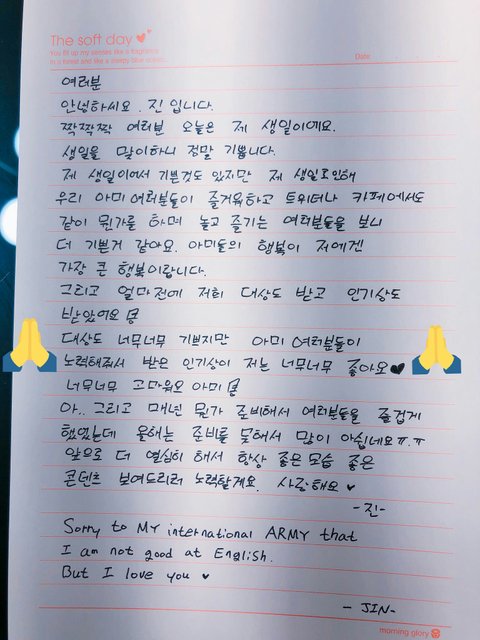 The soft day
You fill up my senses like a fragrance
in a forest and like a sleepy blue ocean.
Date
여러분
안녕하세요. 진 입니다.
짝짝짝 여러분 오늘은 제 생일이에요.
생일을 맞이하니 정말 기쁩니다.
제 생일이어서 기쁜것도 있지만 제 생일로인해
우리 아미여러분들이 즐거워하고 트위터나 카페에서도
같이 뭔가를 하며 놀고 즐기는 여러분들을 보니
더 기쁜거 같아요. 아미들의 행복이 저에겐
가장 큰 행복이랍니다.
그리고 얼마전에 저희 대상도 받고 인기상도
받았어요
대상도 너무너무 기쁘지만 아미 여러분들이
노력해줘서 받은 인기상이 저는 너무너무 좋아요♥
너무너무 고마워요 아미
아.. 그리고 매년 뭔가 준비해서 여러분들을 즐겁게
했었는데 올해는 준비를 못해서 많이 아쉽네요ㅠ.ㅠ
앞으로 더 열심히 해서 항상 좋은모습 좋은
콘텐츠 보여드리려 노력할게요. 사랑해요 ♥
-진-
Sorry to MY international ARMY that
I am not good at English.
But I love you ♥
- JIN-
morning glory